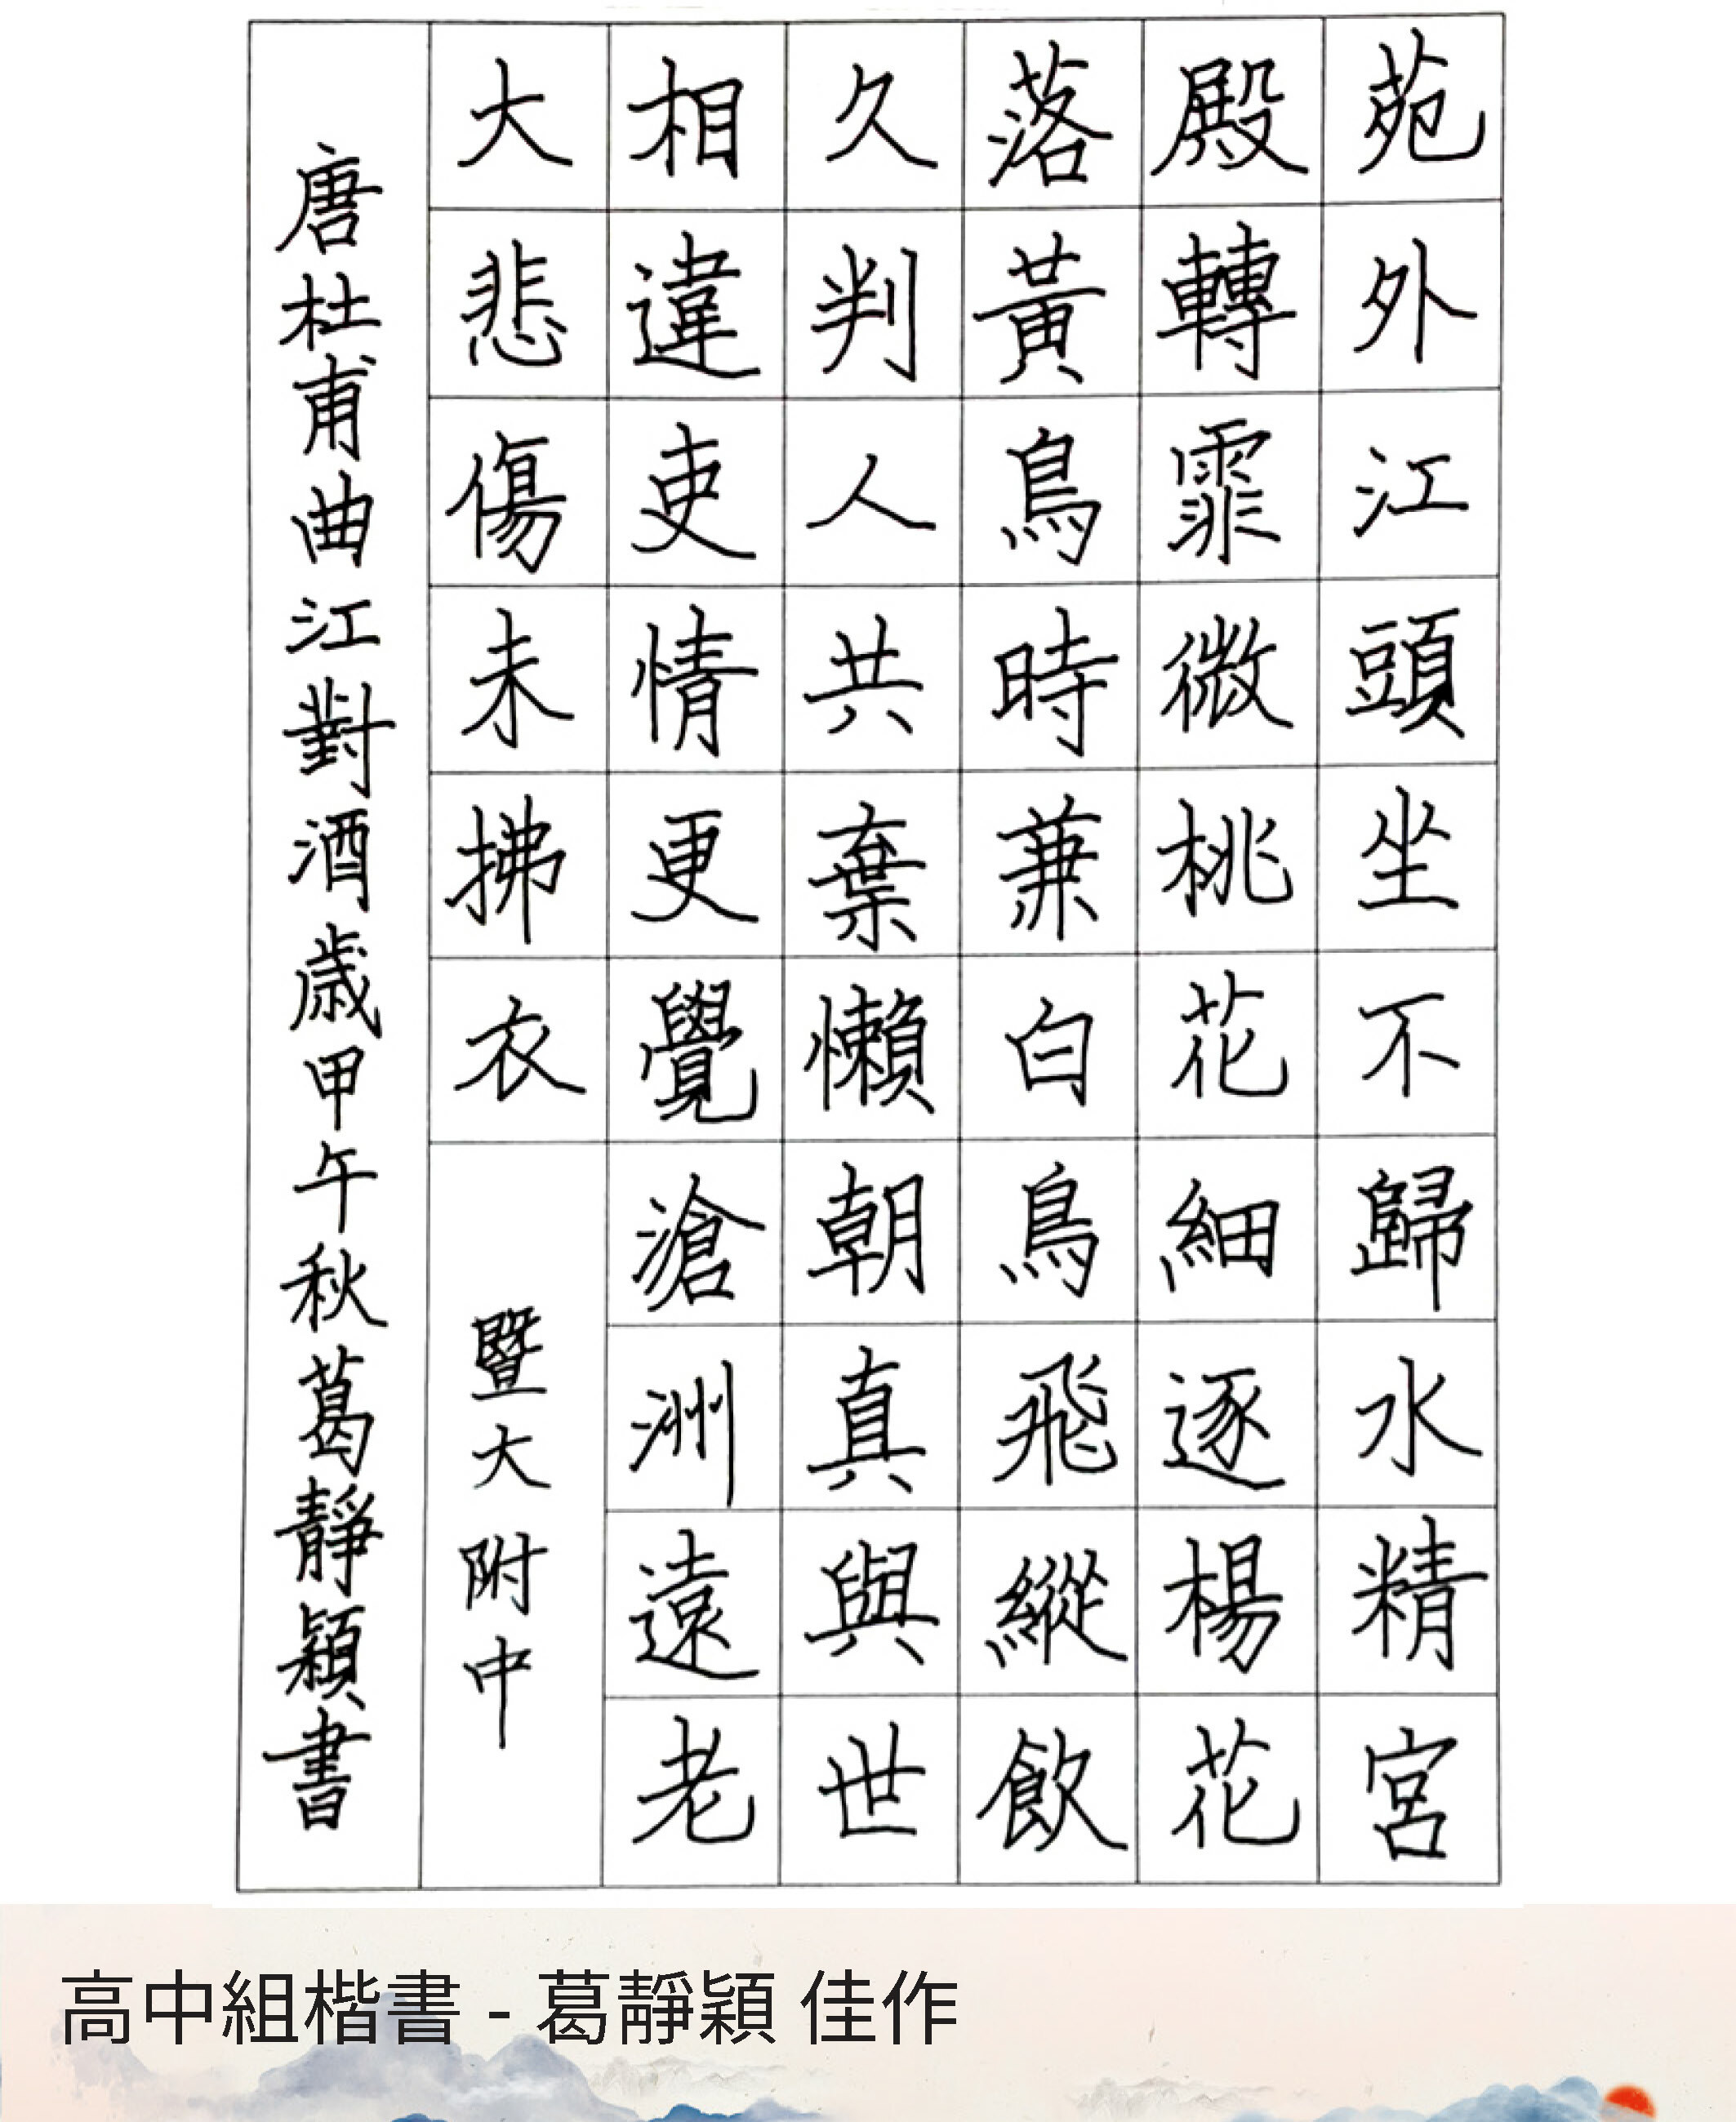 苑外江頭坐不歸水精宮
殿轉霏微桃花細逐楊花
落黃鳥時兼白鳥飛縱飲
久判人共棄懶朝真與世
相違吏情更覺滄洲遠老
大悲傷未拂衣
暨大附中
唐杜甫曲江對酒歲甲午秋葛靜穎書
高中組楷書 - 葛靜穎 佳作